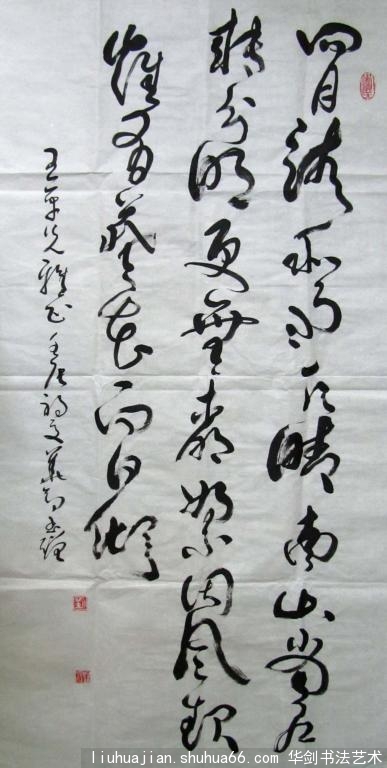 四月清和雨乍晴南山当户
转分明更无柳絮因风起
惟有葵花向日倾
王军先雅正壬辰
liuhuajian.shuhua66.com 华剑书法艺术